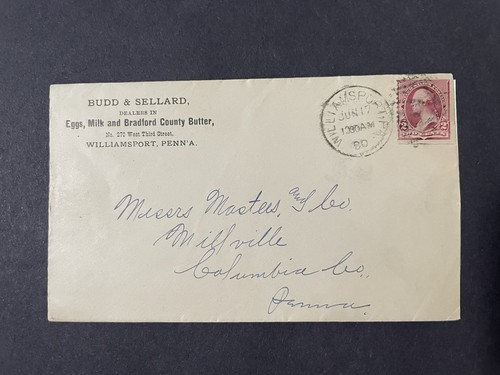 BUDD & SELLARD,
DEALERS IN
Eggs, Milk and Bradford County Butter,
No. 270 West Third Street,
WILLIAMSPORT, PENN'A.
WILLIAMSPORT, PA.
JUN 17
1200AM
90
2 2
Messrs Masters and Co.
Millville
Columbia Co.
Penna